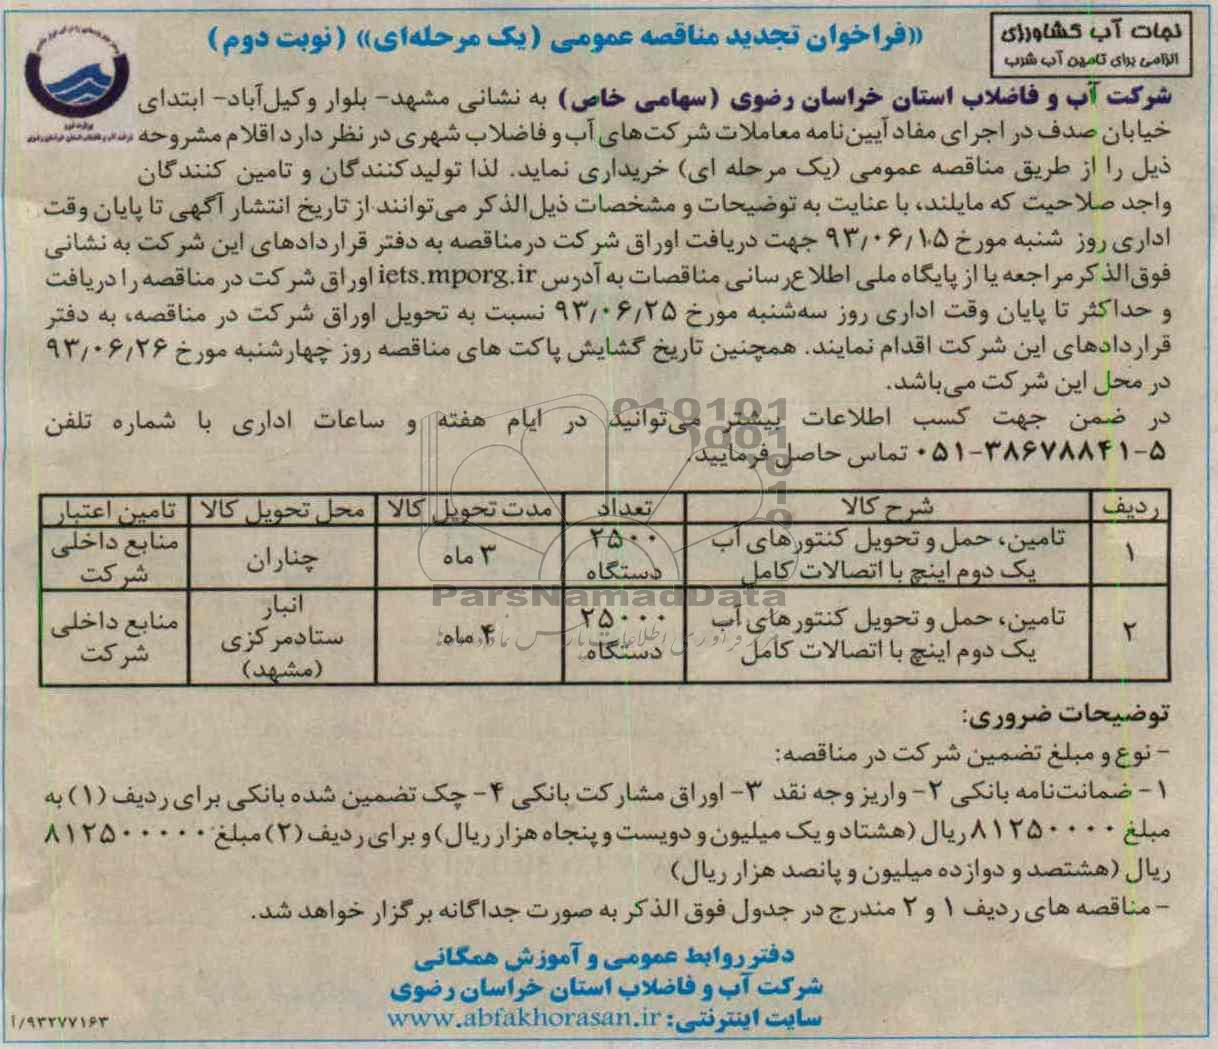 نجات آب کشاورزی
الزامی برای تامین آب شرب
«فراخوان تجدید مناقصه عمومی (یک مرحله‌ای)» (نوبت دوم)
شرکت آب و فاضلاب استان خراسان رضوی (سهامی خاص) به نشانی مشهد- بلوار وکیل‌آباد- ابتدای
خیابان صدف در اجرای مفاد آیین‌نامه معاملات شرکت‌های آب و فاضلاب شهری در نظر دارد اقلام مشروحه
ذیل را از طریق مناقصه عمومی (یک مرحله ای) خریداری نماید. لذا تولیدکنندگان و تامین کنندگان
واجد صلاحیت که مایلند، با عنایت به توضیحات و مشخصات ذیل‌الذکر می‌توانند از تاریخ انتشار آگهی تا پایان وقت
اداری روز شنبه مورخ ۹۳/۰۶/۱۵ جهت دریافت اوراق شرکت درمناقصه به دفتر قراردادهای این شرکت به نشانی
فوق‌الذکر مراجعه یا از پایگاه ملی اطلاع‌رسانی مناقصات به آدرس iets.mporg.ir اوراق شرکت در مناقصه را دریافت
و حداکثر تا پایان وقت اداری روز سه‌شنبه مورخ ۹۳/۰۶/۲۵ نسبت به تحویل اوراق شرکت در مناقصه، به دفتر
قراردادهای این شرکت اقدام نمایند. همچنین تاریخ گشایش پاکت های مناقصه روز چهارشنبه مورخ ۹۳/۰۶/۲۶
در محل این شرکت می‌باشد.
در ضمن جهت کسب اطلاعات بیشتر می‌توانید در ایام هفته و ساعات اداری با شماره تلفن
۵-۳۸۶۷۸۸۴۱-۰۵۱ تماس حاصل فرمایید.
ردیف شرح کالا تعداد مدت تحویل کالا محل تحویل کالا تامین اعتبار
۱ تامین، حمل و تحویل کنتورهای آب یک دوم اینچ با اتصالات کامل ۲۵۰۰ دستگاه ۳ ماه چناران منابع داخلی شرکت
۲ تامین، حمل و تحویل کنتورهای آب یک دوم اینچ با اتصالات کامل ۲۵۰۰۰ دستگاه ۴ ماه انبار ستادمرکزی (مشهد) منابع داخلی شرکت
ParsNamadData
توضیحات ضروری:
- نوع و مبلغ تضمین شرکت در مناقصه:
۱- ضمانت‌نامه بانکی ۲- واریز وجه نقد ۳- اوراق مشارکت بانکی ۴- چک تضمین شده بانکی برای ردیف (۱) به
مبلغ ۸۱۲۵۰۰۰۰ ریال (هشتاد و یک میلیون و دویست و پنجاه هزار ریال) و برای ردیف (۲) مبلغ ۸۱۲۵۰۰۰۰۰
ریال (هشتصد و دوازده میلیون و پانصد هزار ریال)
- مناقصه های ردیف ۱ و ۲ مندرج در جدول فوق الذکر به صورت جداگانه برگزار خواهد شد.
دفتر روابط عمومی و آموزش همگانی
شرکت آب و فاضلاب استان خراسان رضوی
سایت اینترنتی: www.abfakhorasan.ir
۹۳۲۷۷۱۶۳/آ